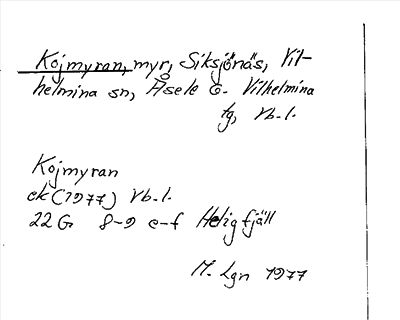 Kojmyran, myr, Siksjönäs, Vil-
helmina sn, Åsele o. Vilhelmina
tg, Vb.l.
Kojmyran
ek (1977) Vb.l.
22 G 8-9 e-f Heligfjäll
M. Lgn 1977